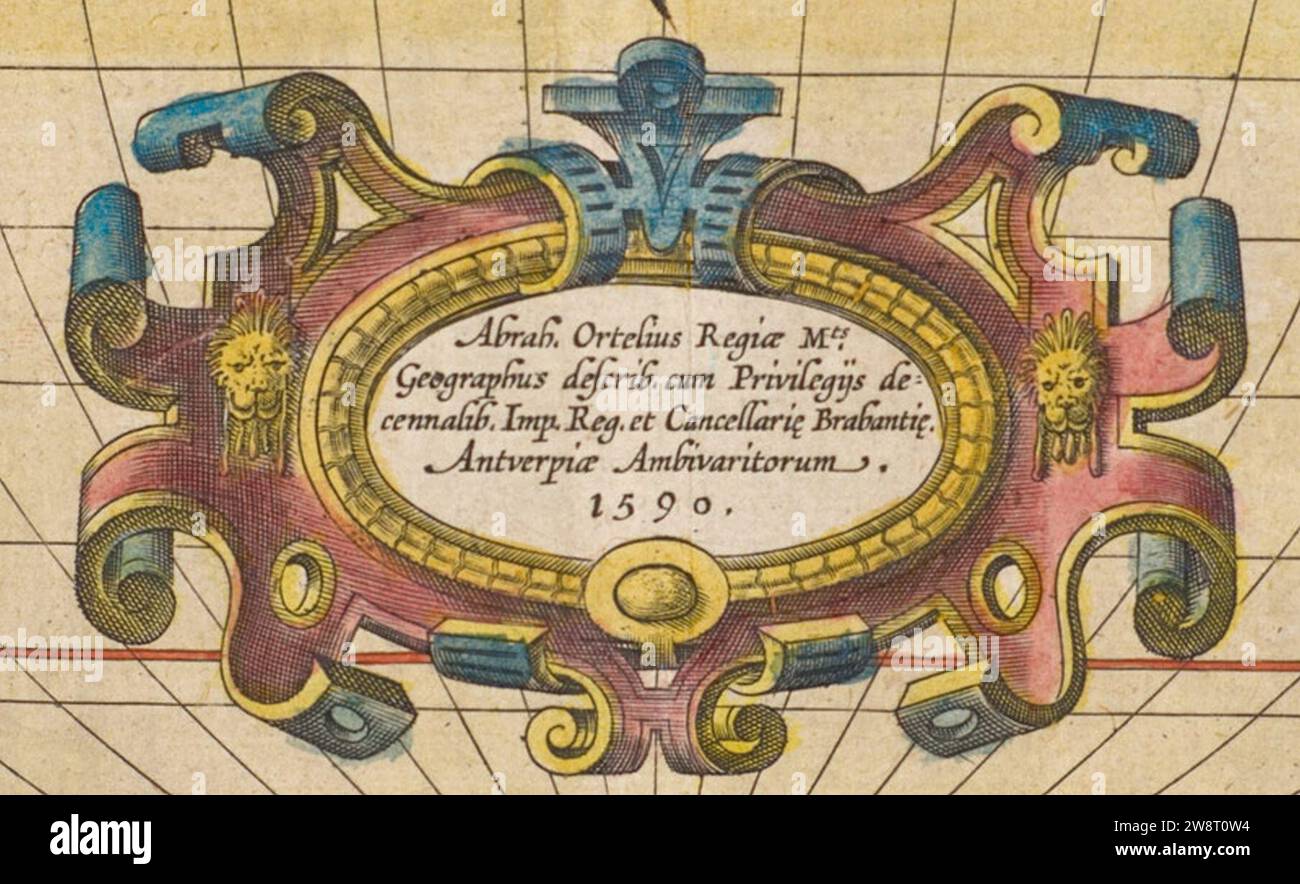 Abrah. Ortelius Regiæ Mᵗˢ.
Geographus deſcrib. cum Privilegijs de=
cennalib. Imp. Reg. et Cancellarię Brabantię.
Antverpiæ Ambivaritorum.
1590.
alamy
Image ID: 2W8T0W4
www.alamy.com